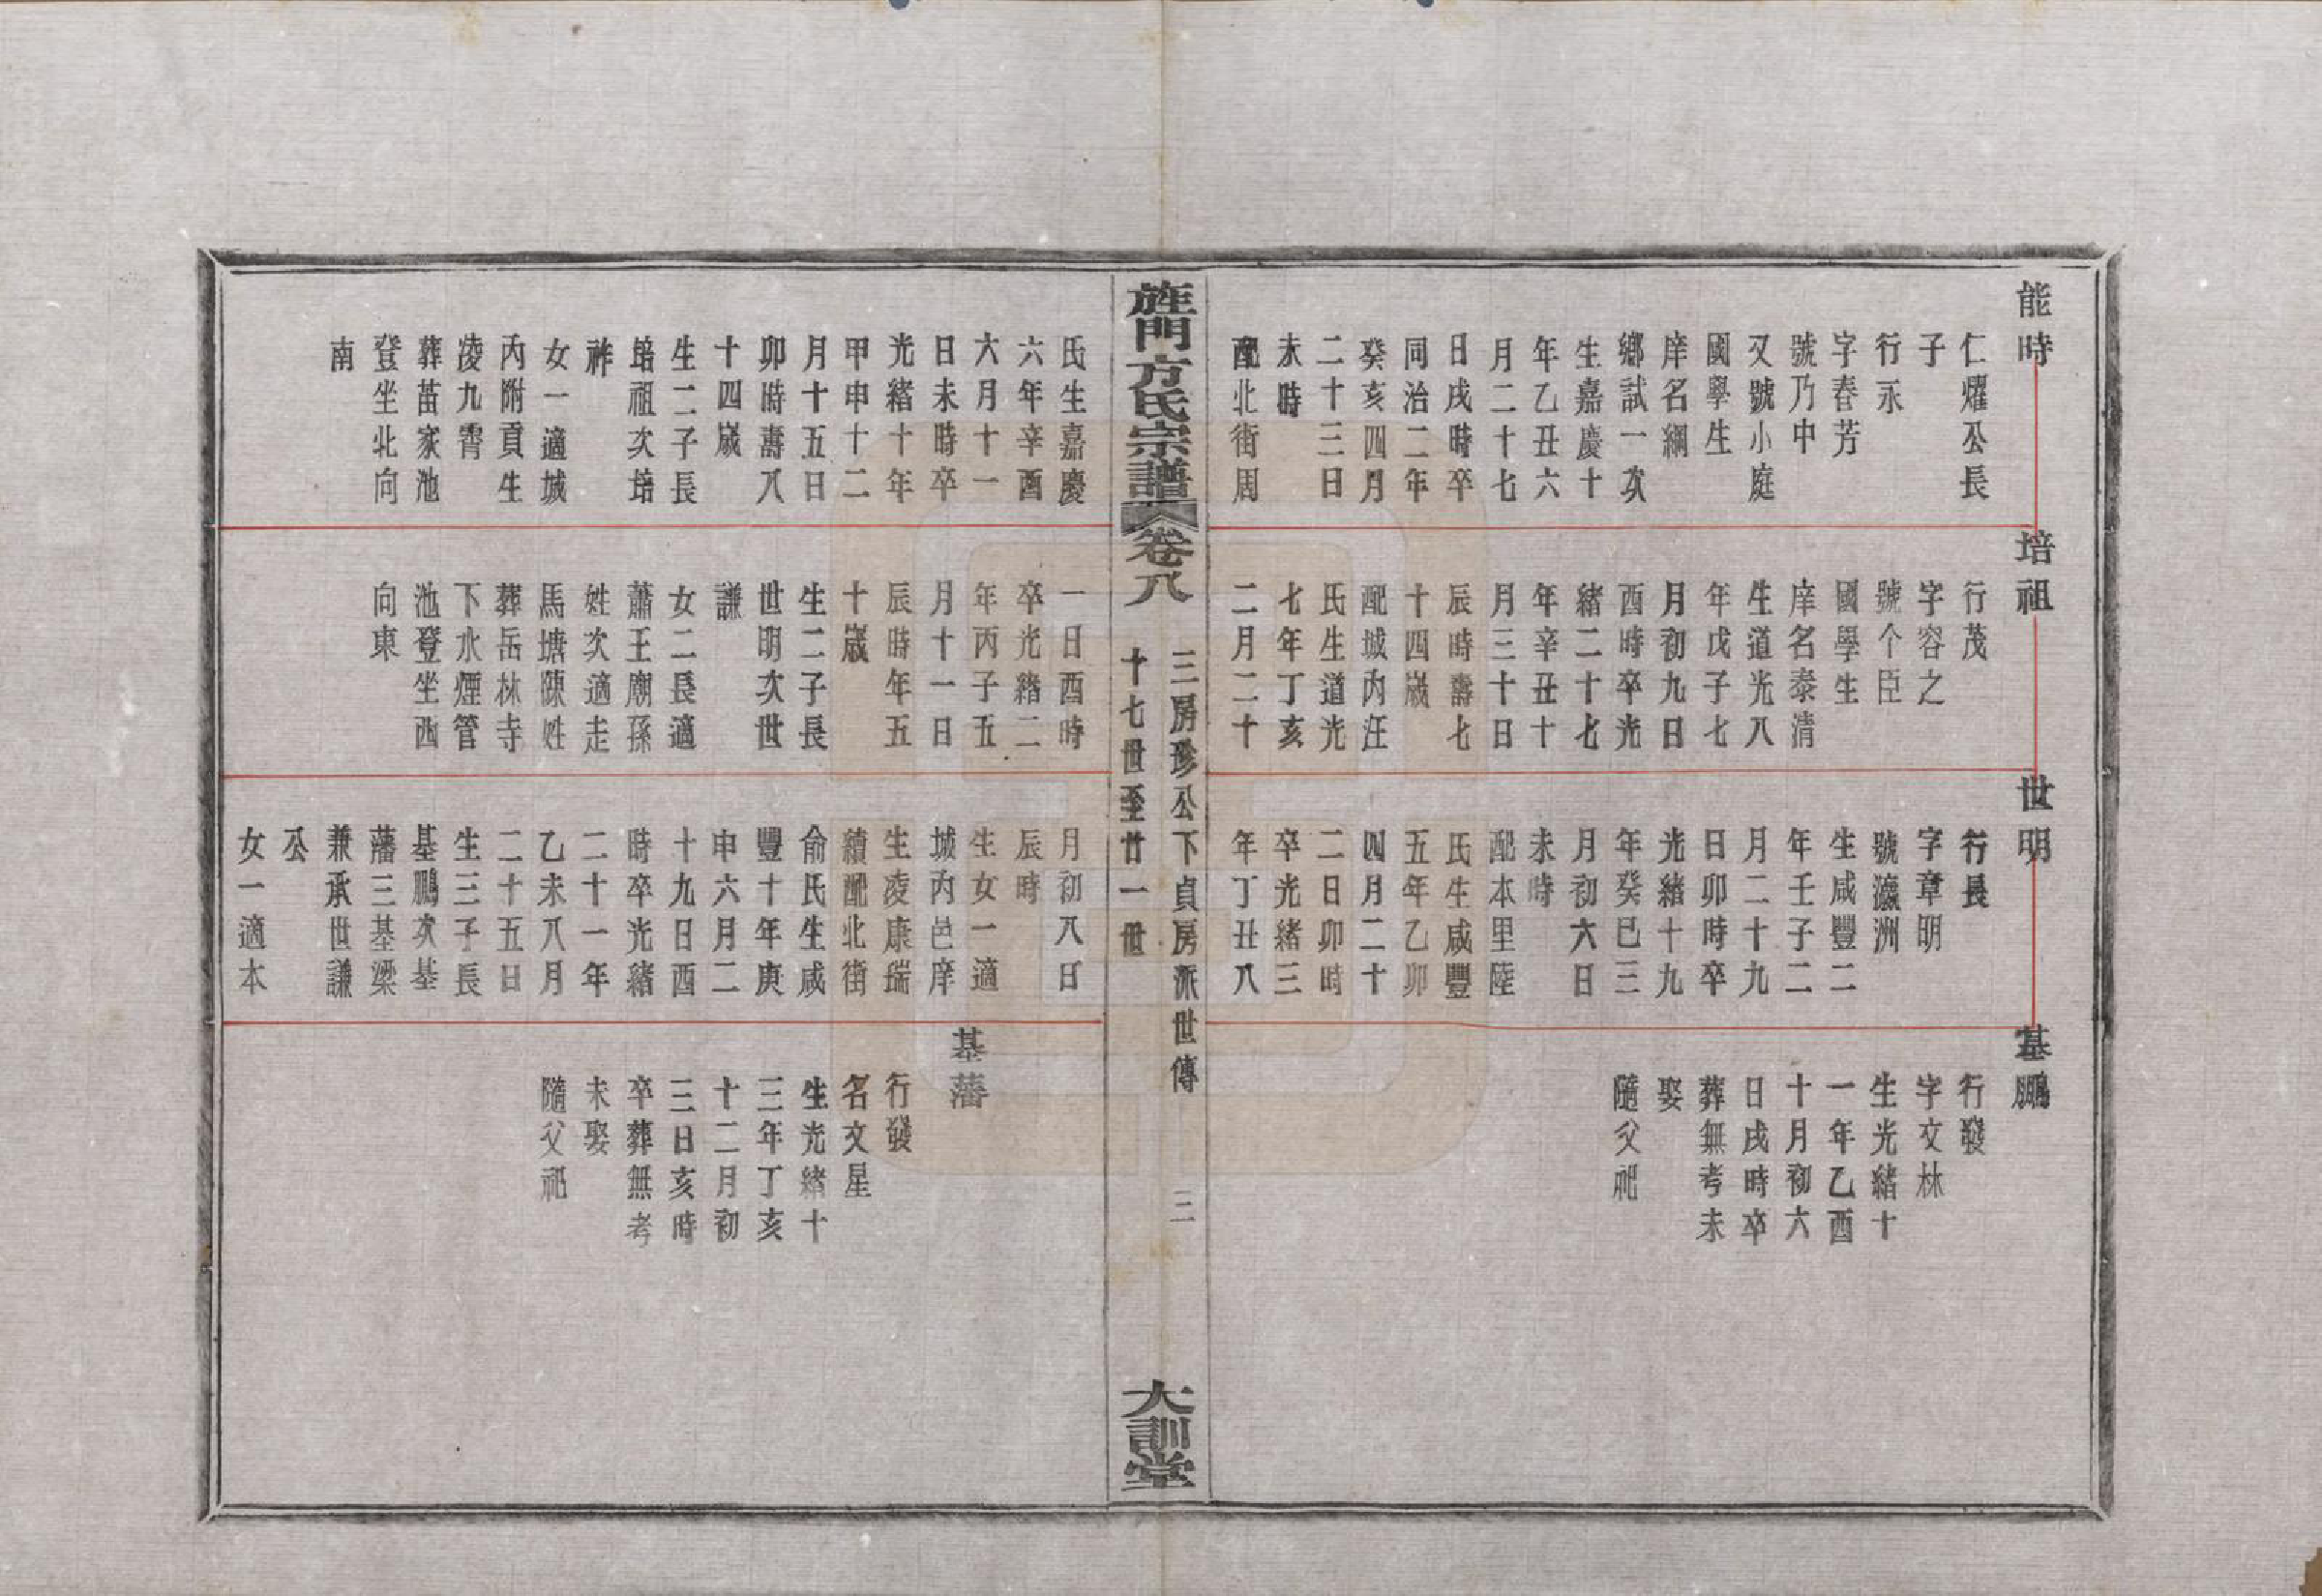 能時
仁燿公長
子
行永
字春芳
號乃中
又號小庭
國學生
庠名綱
鄉試一次
生嘉慶十
年乙丑六
月二十七
日戌時卒
同治二年
癸亥四月
二十三日
未時
配北街周
氏生嘉慶
六年辛酉
六月十一
日未時卒
光緒十年
甲申十二
月十五日
卯時壽八
十四歲
生二子長
培祖次培
祚
女一適城
內附貢生
凌九霄
葬苗家池
登坐北向
南
培祖
行茂
字容之
號个臣
國學生
庠名泰清
生道光八
年戊子七
月初九日
酉時卒光
緒二十七
年辛丑十
月三十日
辰時壽七
十四歲
配城內汪
氏生道光
七年丁亥
二月二十
一日酉時
卒光緒二
年丙子五
月十一日
辰時年五
十歲
生二子長
世明次世
謙
女二長適
蕭王廟孫
姓次適走
馬塘陳姓
葬岳林寺
下水煙管
池登坐西
向東
世明
行長
字章明
號瀛洲
生咸豐二
年壬子二
月二十九
日卯時卒
光緒十九
年癸巳三
月初六日
未時
配本里陸
氏生咸豐
五年乙卯
四月二十
二日卯時
卒光緒三
年丁丑八
月初八日
辰時
生女一適
城內邑庠
生凌康瑞
續配北街
俞氏生咸
豐十年庚
申六月二
十九日酉
時卒光緒
二十一年
乙未八月
二十五日
生三子長
基鵬次基
藩三基梁
兼承世謙
公
女一適本
基鵬
行發
字文林
生光緒十
一年乙酉
十月初六
日戌時卒
葬無考未
娶
隨父祀
基藩
行發
名文星
生光緒十
三年丁亥
十二月初
三日亥時
卒葬無考
未娶
隨父祀
旌門方氏宗譜
卷八
三房珍公下貞房派世傳
十七世至廿一世
三
大訓堂